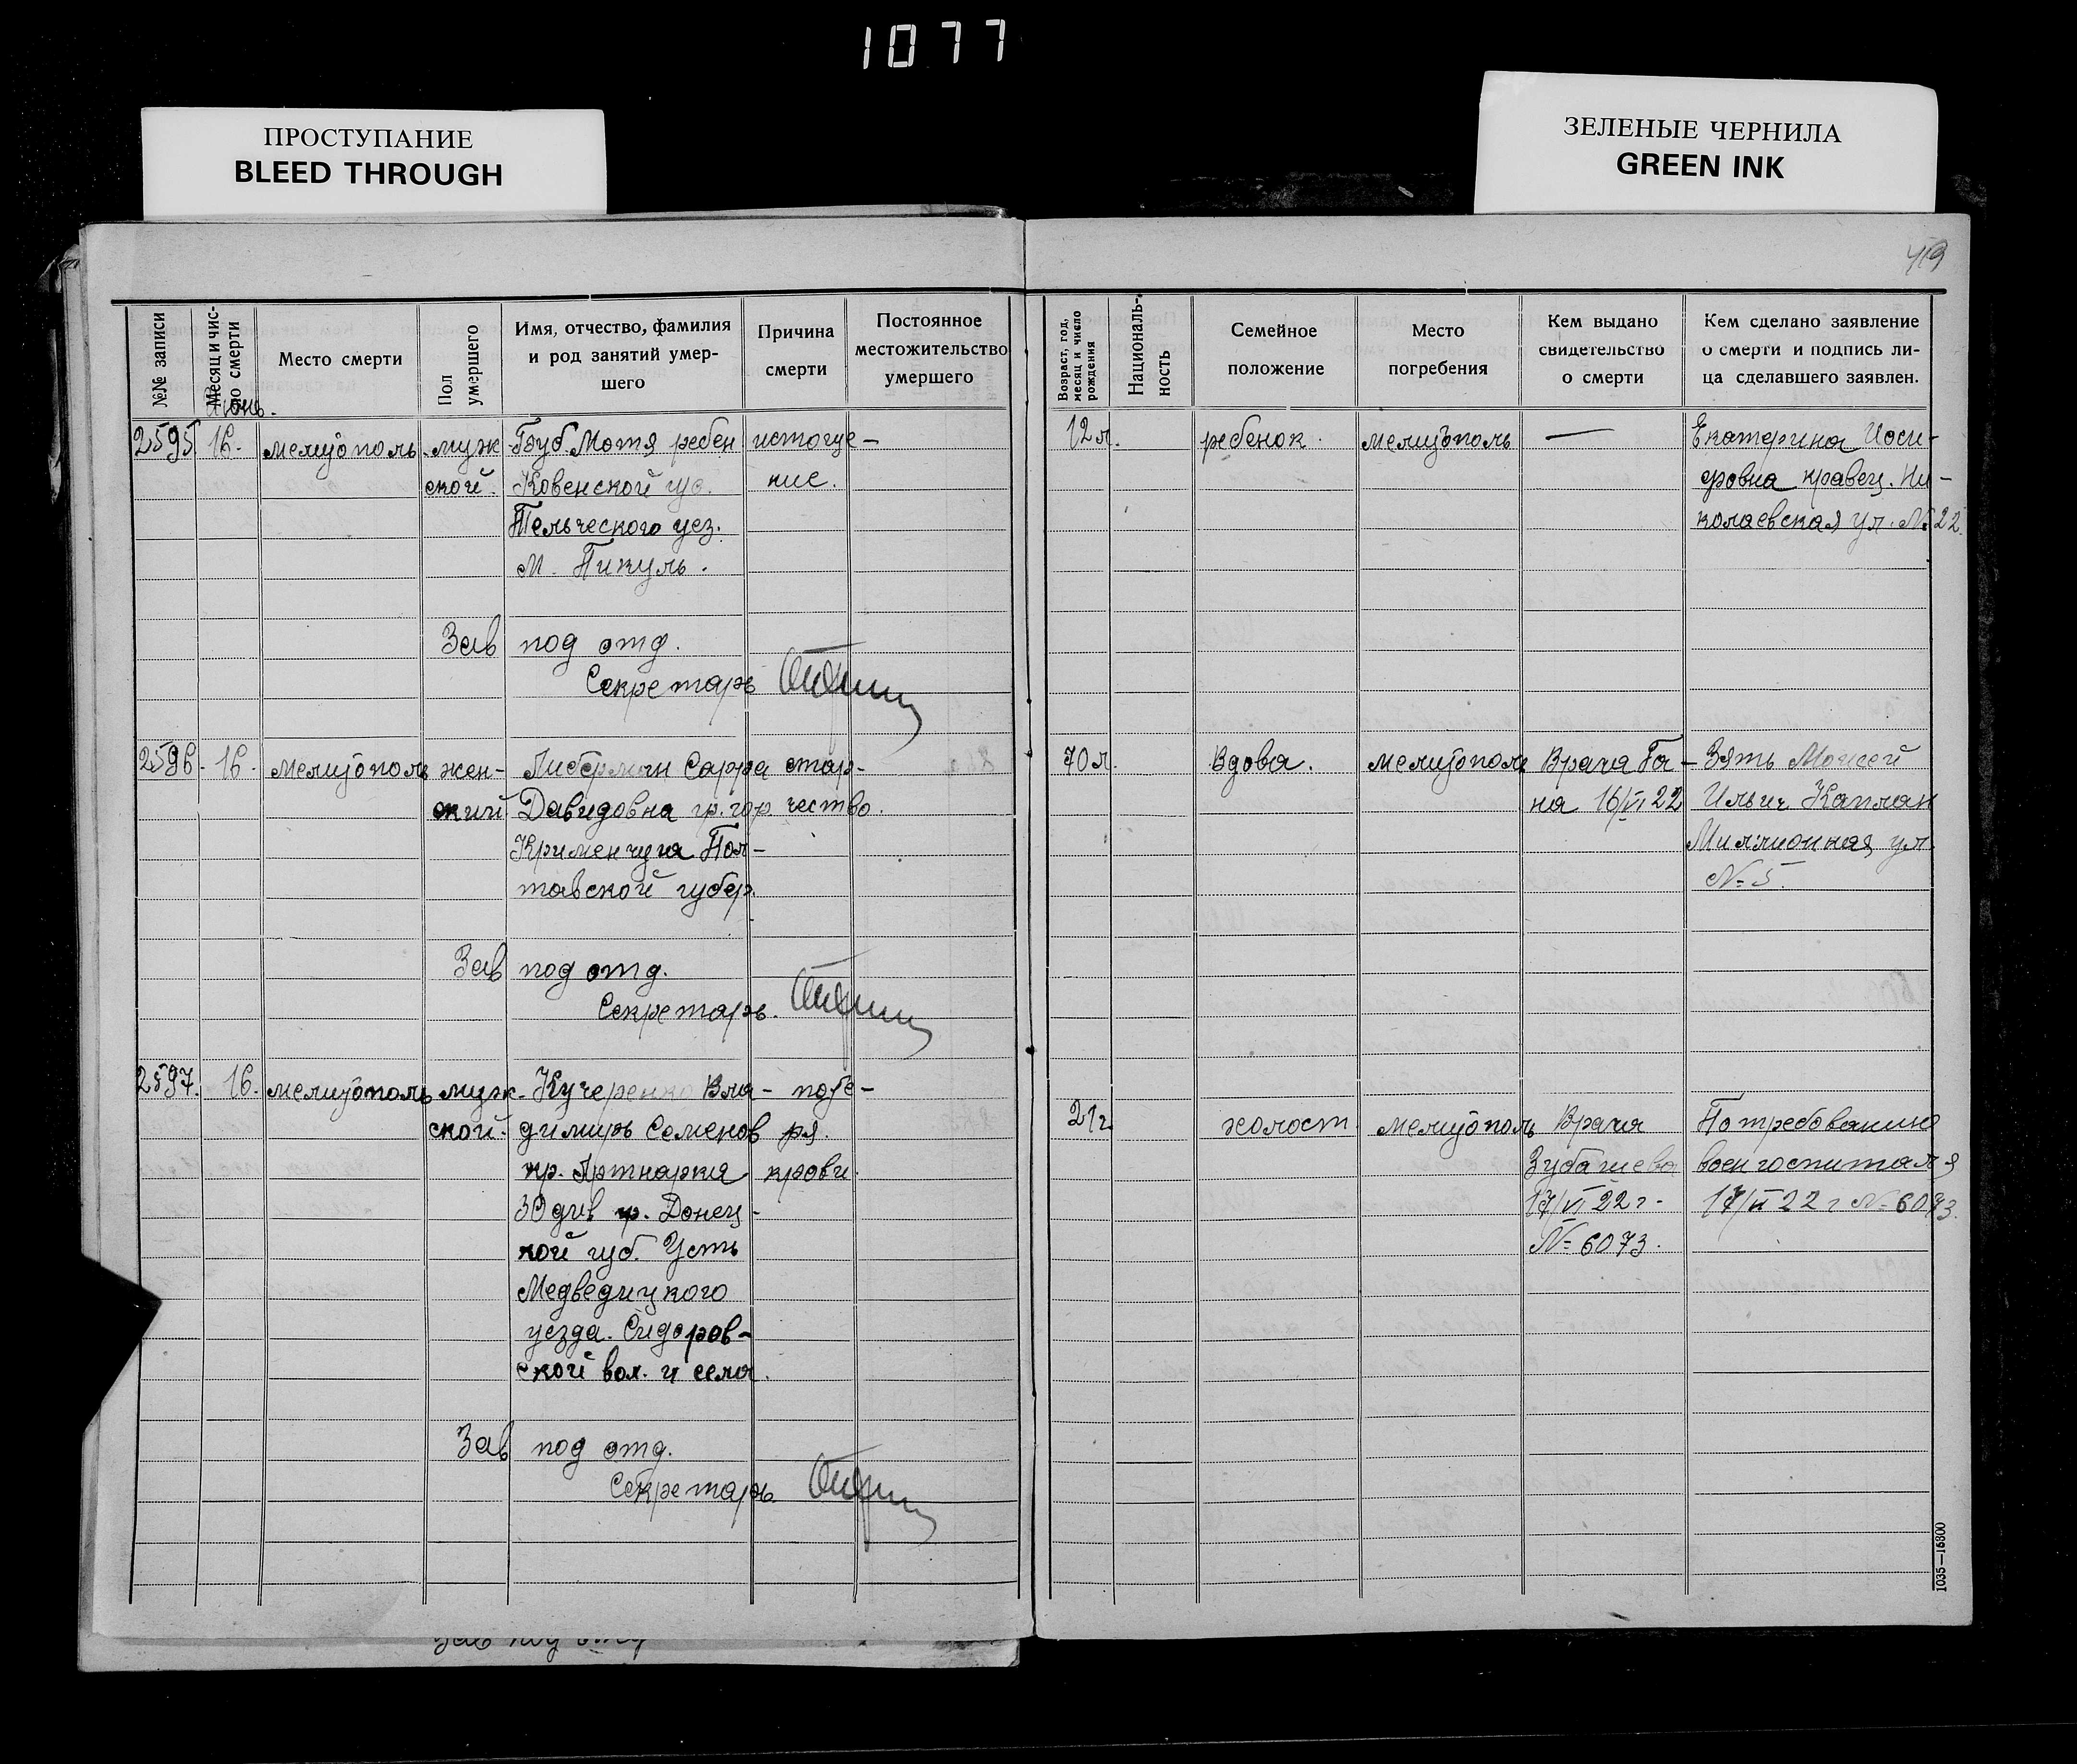 1077
ПРОСТУПАНИЕ
BLEED THROUGH
ЗЕЛЕНЫЕ ЧЕРНИЛА
GREEN INK
419
№№ записи
Месяц и чис-
ло смерти
Место смерти
Пол
умершего
Имя, отчество, фамилия
и род занятий умер-
шего
Причина
смерти
Постоянное
местожительство
умершего
Возраст, год,
месяц и число
рождения
Националь-
ность
Семейное
положение
Место
погребения
Кем выдано
свидетельство
о смерти
Кем сделано заявление
о смерти и подпись ли-
ца сделавшего заявлен.
Июнь.
2595 16. мелитополь муж
ской.
Мотя ребен
Ковенской губ.
Тельческого уез.
м. Пикуль.
истоще-
ние.
12 л. ребенок. мелитополь —
Екатерина Иоси-
фовна кравец. Ни-
колаевская ул. № 22.
Зав под отд.
Секретарь
2596. 16. мелитополь жен-
ский
Либерман Сарра
Давидовна гр. гор.
Кременчуга Пол-
тавской губер.
стар-
чество.
70 л. Вдова. мелитополь Врача Га-
на 16/VI 22
Зять Моисей
Ильич Каплан
Миллионная ул.
№ 5.
Зав под отд.
Секретарь.
2597. 16. мелитополь муж-
ской.
Кучеренко Вла-
димир Семенов
кр. Артпарка
30 див гр. Донец-
кой губ. Усть
Медведицкого
уезда. Сидоров-
ской вол. и села.
поте-
ря
крови.
21 г. холост. мелитополь Врача
17/VI 22 г.
№ 6073.
По требованию
воен госпиталя
17/VI 22 г № 6073.
Зав под отд.
Секретарь.
Зав под отд
1035—16800